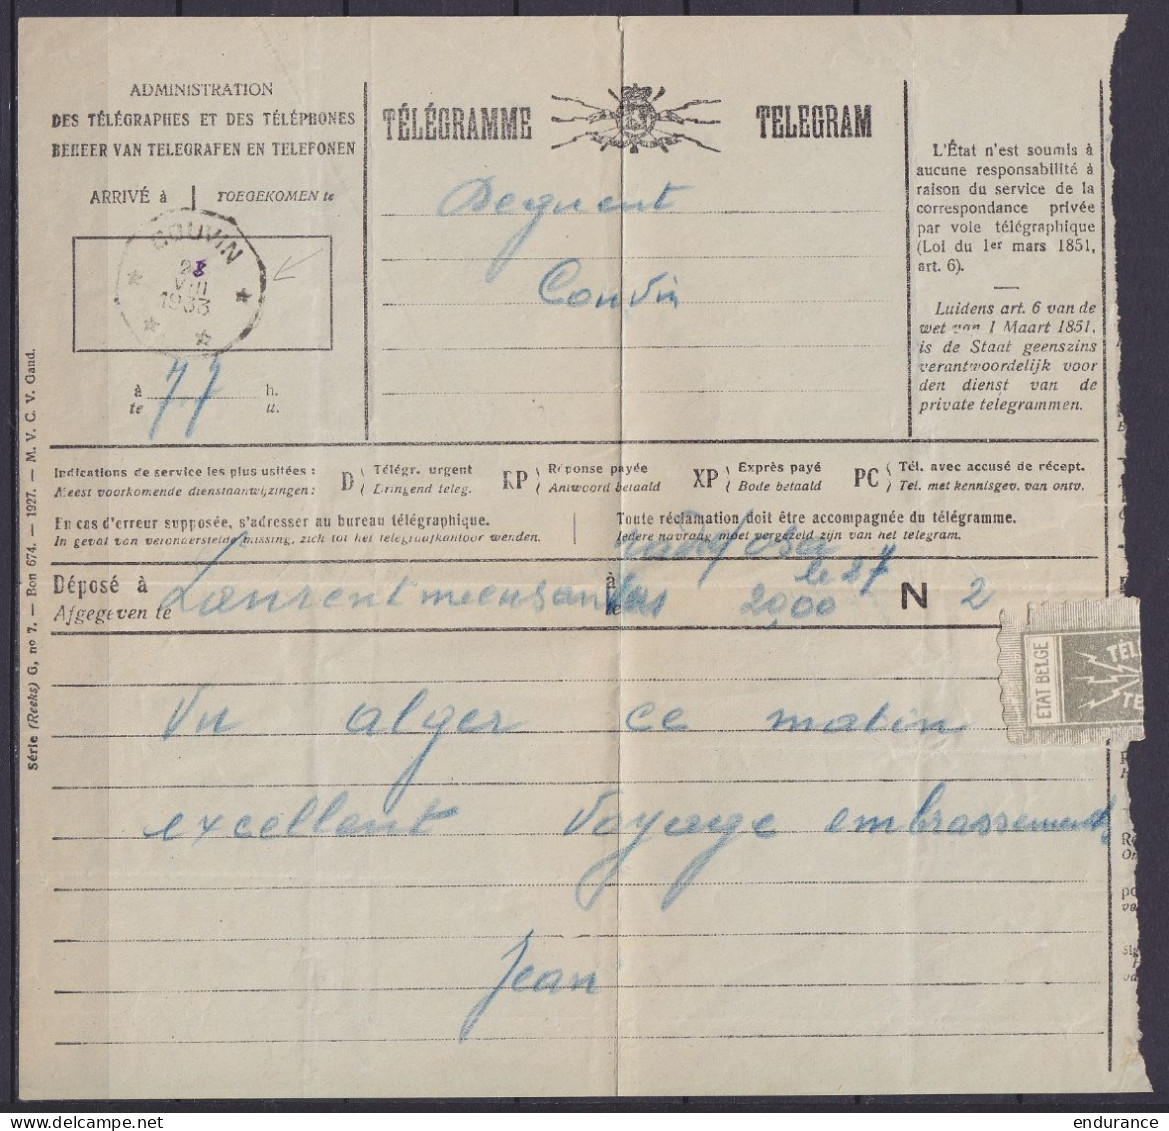 ADMINISTRATION
DES TÉLÉGRAPHES ET DES TÉLÉPHONES
BEHEER VAN TELEGRAFEN EN TELEFONEN
ARRIVÉ à | TOEGEKOMEN te
COUVIN
28
VIII
1933
à h.
te u.
TÉLÉGRAMME TELEGRAM
Couvin
L'État n'est soumis à
aucune responsabilité à
raison du service de la
correspondance privée
par voie télégraphique
(Loi du 1er mars 1851,
art. 6).
Luidens art. 6 van de
wet van 1 Maart 1851,
is de Staat geenszins
verantwoordelijk voor
den dienst van de
private telegrammen.
Indications de service les plus usitées :
Meest voorkomende dienstaanwijzingen :
D Télégr. urgent
Dringend teleg.
RP Réponse payée
Antwoord betaald
XP Exprès payé
Bode betaald
PC Tél. avec accusé de récept.
Tel. met kennisgev. van ontv.
En cas d'erreur supposée, s'adresser au bureau télégraphique.
In geval van veronderstelde missing, zich tot het telegraafkantoor wenden.
Toute réclamation doit être accompagnée du télégramme.
Iedere navraag moet vergezeld zijn van het telegram.
Déposé à
Afgegeven te
le 27
20,00 N 2
Vu alger ce matin
excellent voyage embrassements
Jean
ETAT BELGE
TÉL
TE
Série (Reeks) G, no 7. — Bon 674. — 1927. — M. V. C. V. Gand.
endurance